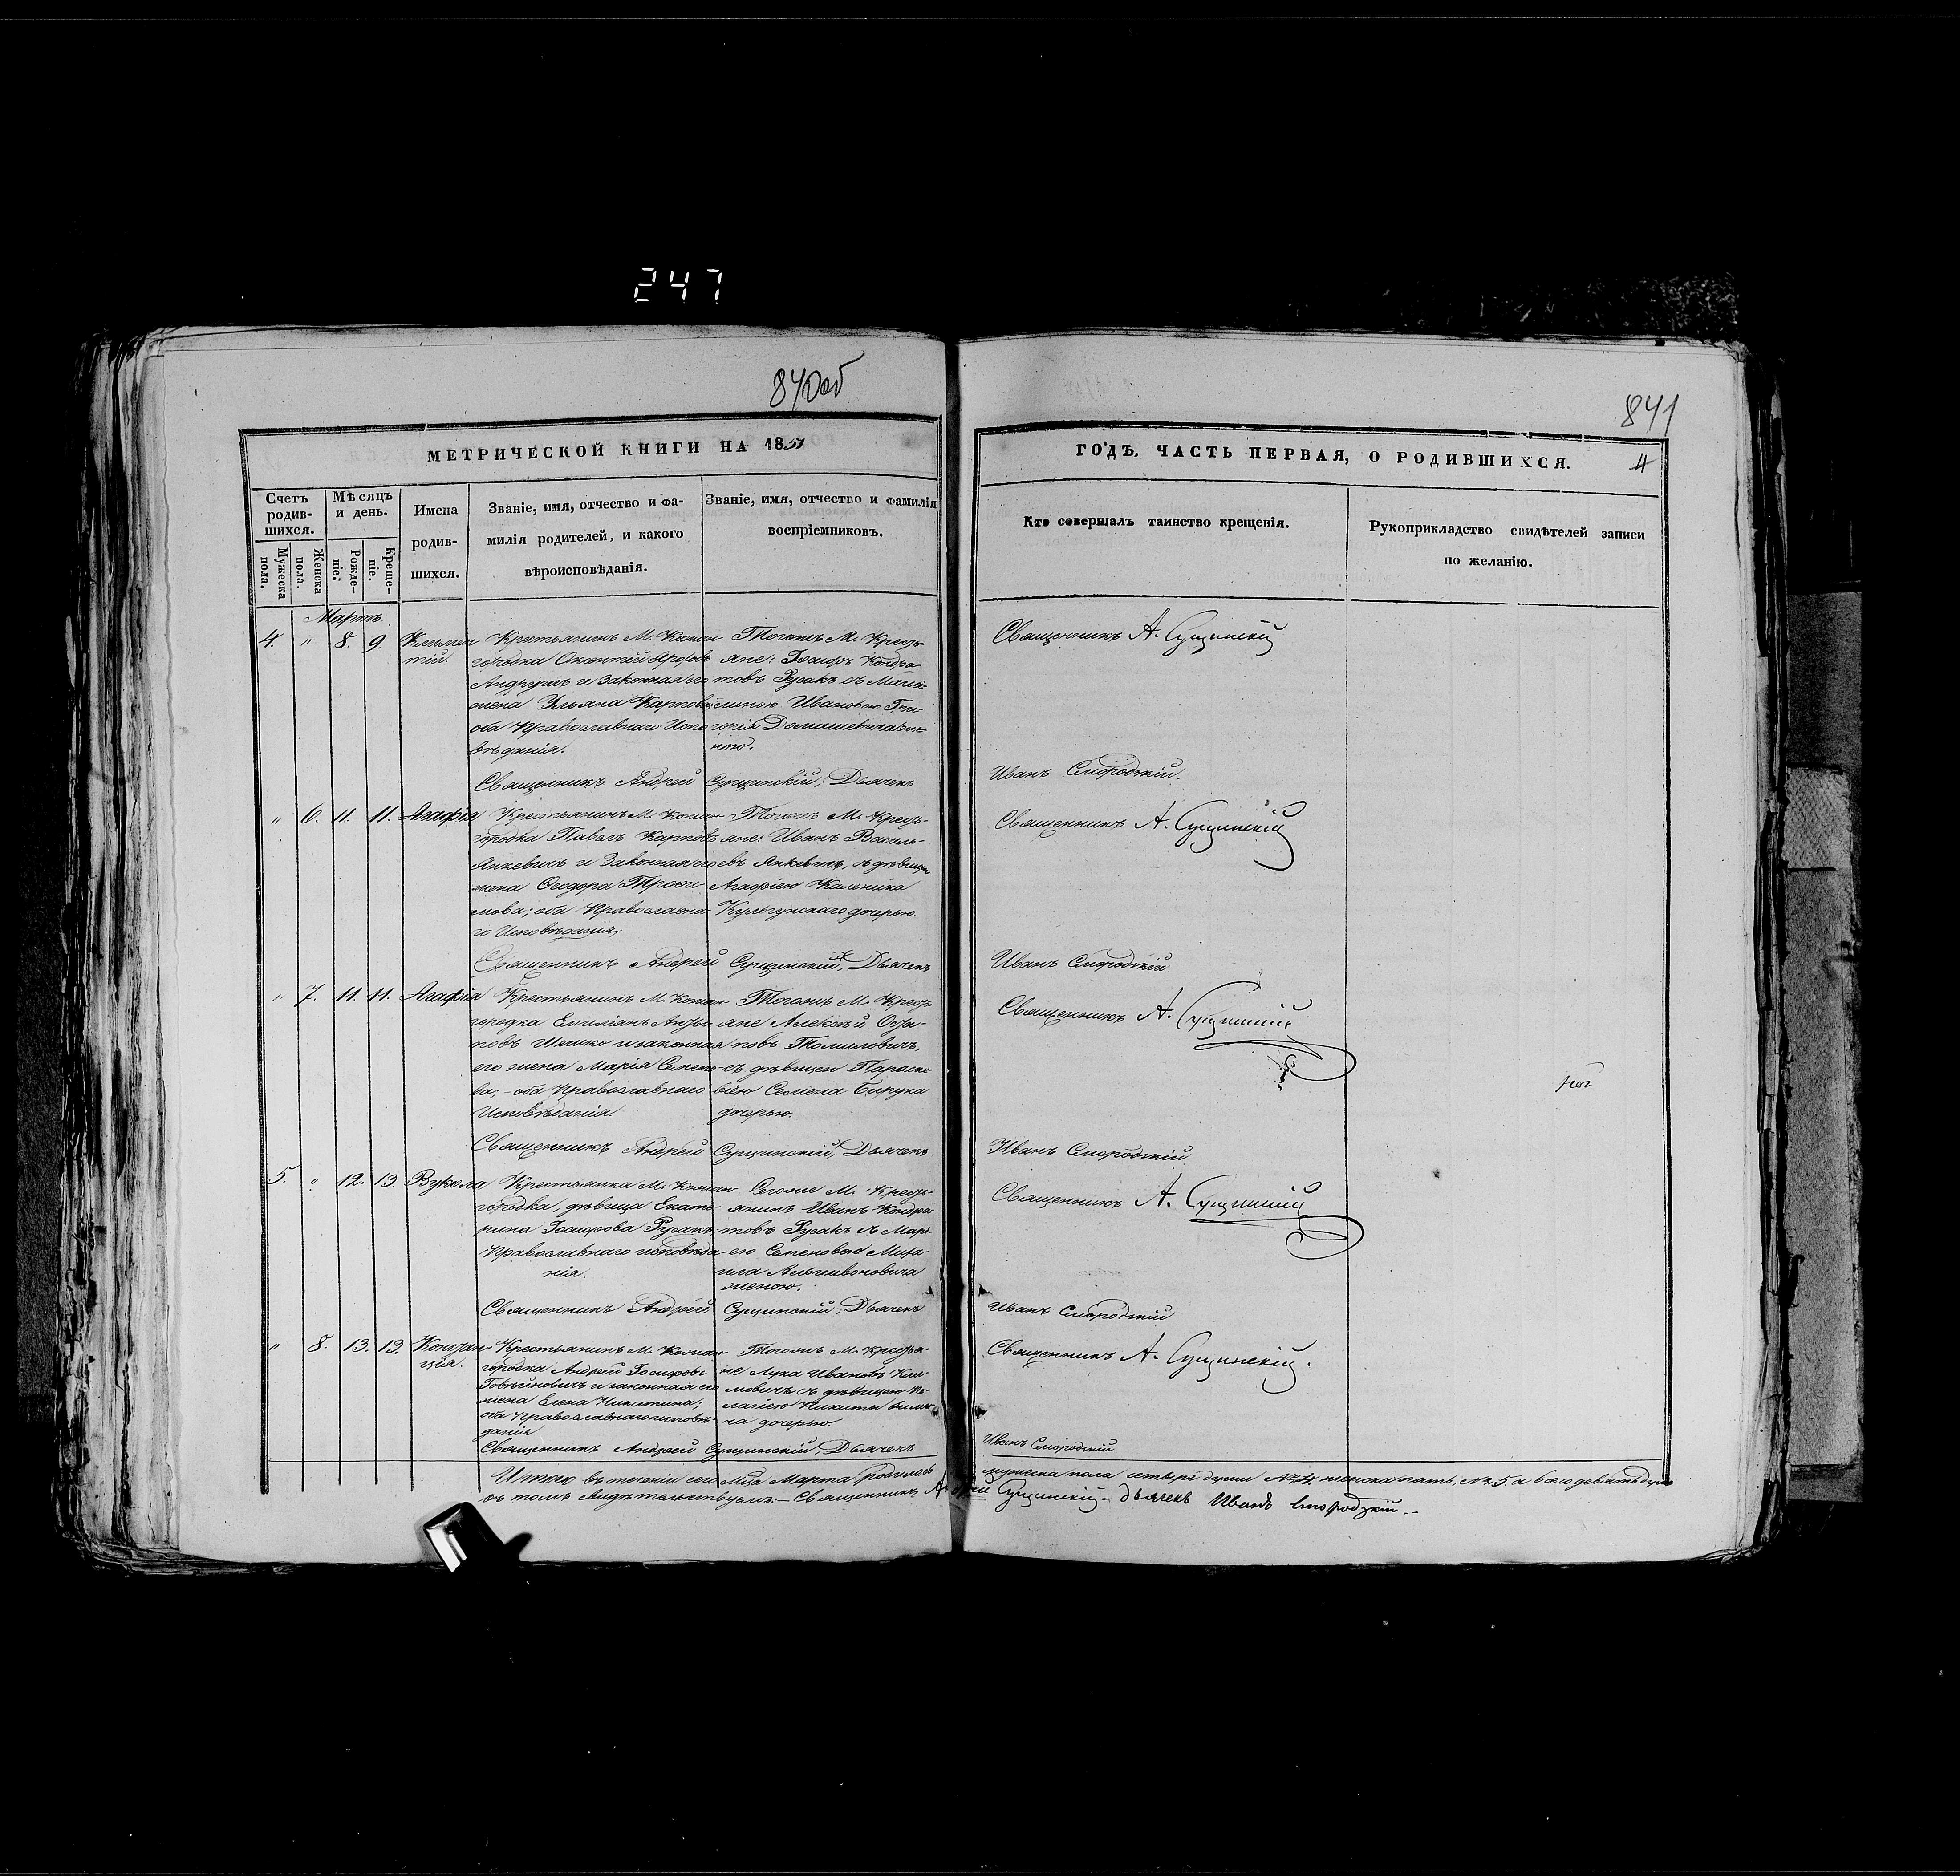 247
840об
841
МЕТРИЧЕСКОЙ КНИГИ НА 1851
ГОДЪ, ЧАСТЬ ПЕРВАЯ, О РОДИВШИХСЯ.
4
Счетъ родив-шихся.
Мѣсяцъ и день.
Имена родив-шихся.
Званіе, имя, отчество и фа-
милія родителей, и какого
вѣроисповѣданія.
Званіе, имя, отчество и фамилія
воспріемниковъ.
Кто совершалъ таинство крещенія.
Рукоприкладство свидѣтелей записи
по желанію.
Мужеска пола.
Женска пола.
Рожде-ніе.
Креще-ніе.
Мартъ
4. " 8. 9.
Крестьянинъ М. Кожан-
городка
и законная его
жена Ульяна Карпова
оба Православнаго Испо-
вѣданія.
Тогожъ М. Кресть-
яне: Іосифъ Кондра-
товъ Русакъ съ
Ивановою
женою.
Священникъ А. Сущинскій
Священникъ Андрей Сущинскій, Дьячекъ
Иванъ Смородскій.
" 6. 11. 11. Агафія
Крестьянинъ М. Кожан-
городка Павелъ Карповъ
Янкевичъ и Законная его
жена Ѳеодора Трофи-
мова; оба Православна-
го Исповѣданія;
Тогожъ М. Кресть-
яне: Иванъ Василь-
евъ Янкевичъ, съ дѣвицею
Агафіею Каленика
дочерью.
Священникъ А. Сущинскій
Священникъ Андрей Сущинскій, Дьячекъ
Иванъ Смородскій
" 7. 11. 11. Агафія
Крестьянинъ М. Кожан-
городка Емиліанъ
и законная
его жена Марія Семено-
ва; - оба Православнаго
Исповѣданія.
Тогожъ М. Кресть-
яне Алексѣй Оста-
повъ Томиловичъ,
съ дѣвицею Параске-
віею Семена Бирука
дочерью.
Священникъ А. Сущинскій
Священникъ Андрей Сущинскій, Дьячекъ
Иванъ Смородскій
5. " 12. 13. Вукола
Крестьянка М. Кожан-
городка, дѣвица Екате-
рина Іосифова Русакъ
Православнаго исповѣда-
нія.
Сегоже М. Кресть-
янинъ Иванъ Кондра-
товъ Русакъ съ Марі-
ею Семеновою Миха-
ила
женою.
Священникъ А. Сущинскій
Священникъ Андрей Сущинскій, Дьячекъ
Иванъ Смородскій
" 8. 13. 13. Констан-
ція.
Крестьянинъ М. Кожан-
городка Андрей Іосифовъ
и законная его
жена Елена Никитина;
оба Православнаго исповѣ-
данія
Тогожъ М. Крестья-
не Лука Ивановъ
съ дѣвицею Пе-
лагіею Никиты
дочерью.
Священникъ А. Сущинскій.
Священникъ Андрей Сущинскій, Дьячекъ
Иванъ Смородскій
Итого въ теченіи сего Мца Марта родилось мужеска пола четыре души № 4, женска пять, № 5, а всего девять душъ
въ томъ свидѣтельствуемъ: - Священникъ Андрей Сущинскій - дьячекъ Иванъ Смородскій.-